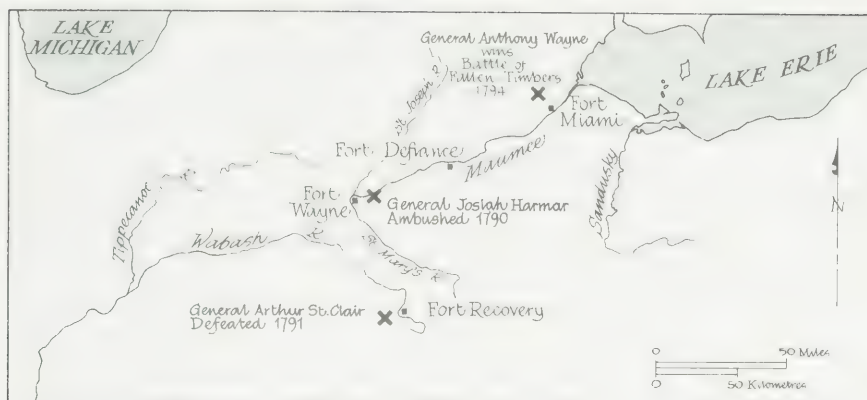 LAKE
MICHIGAN
General Anthony Wayne
wins
Battle of
Fallen Timbers
1794
LAKE ERIE
St. Joseph R.
Fort
Miami
Fort Defiance
Maumee
Sandusky
Tippecanoe
Fort
Wayne
General Josiah Harmar
Ambushed 1790
N
Wabash
R.
St. Mary's R.
General Arthur St. Clair
Defeated 1791
Fort Recovery
0
50 Miles
0
50 Kilometres